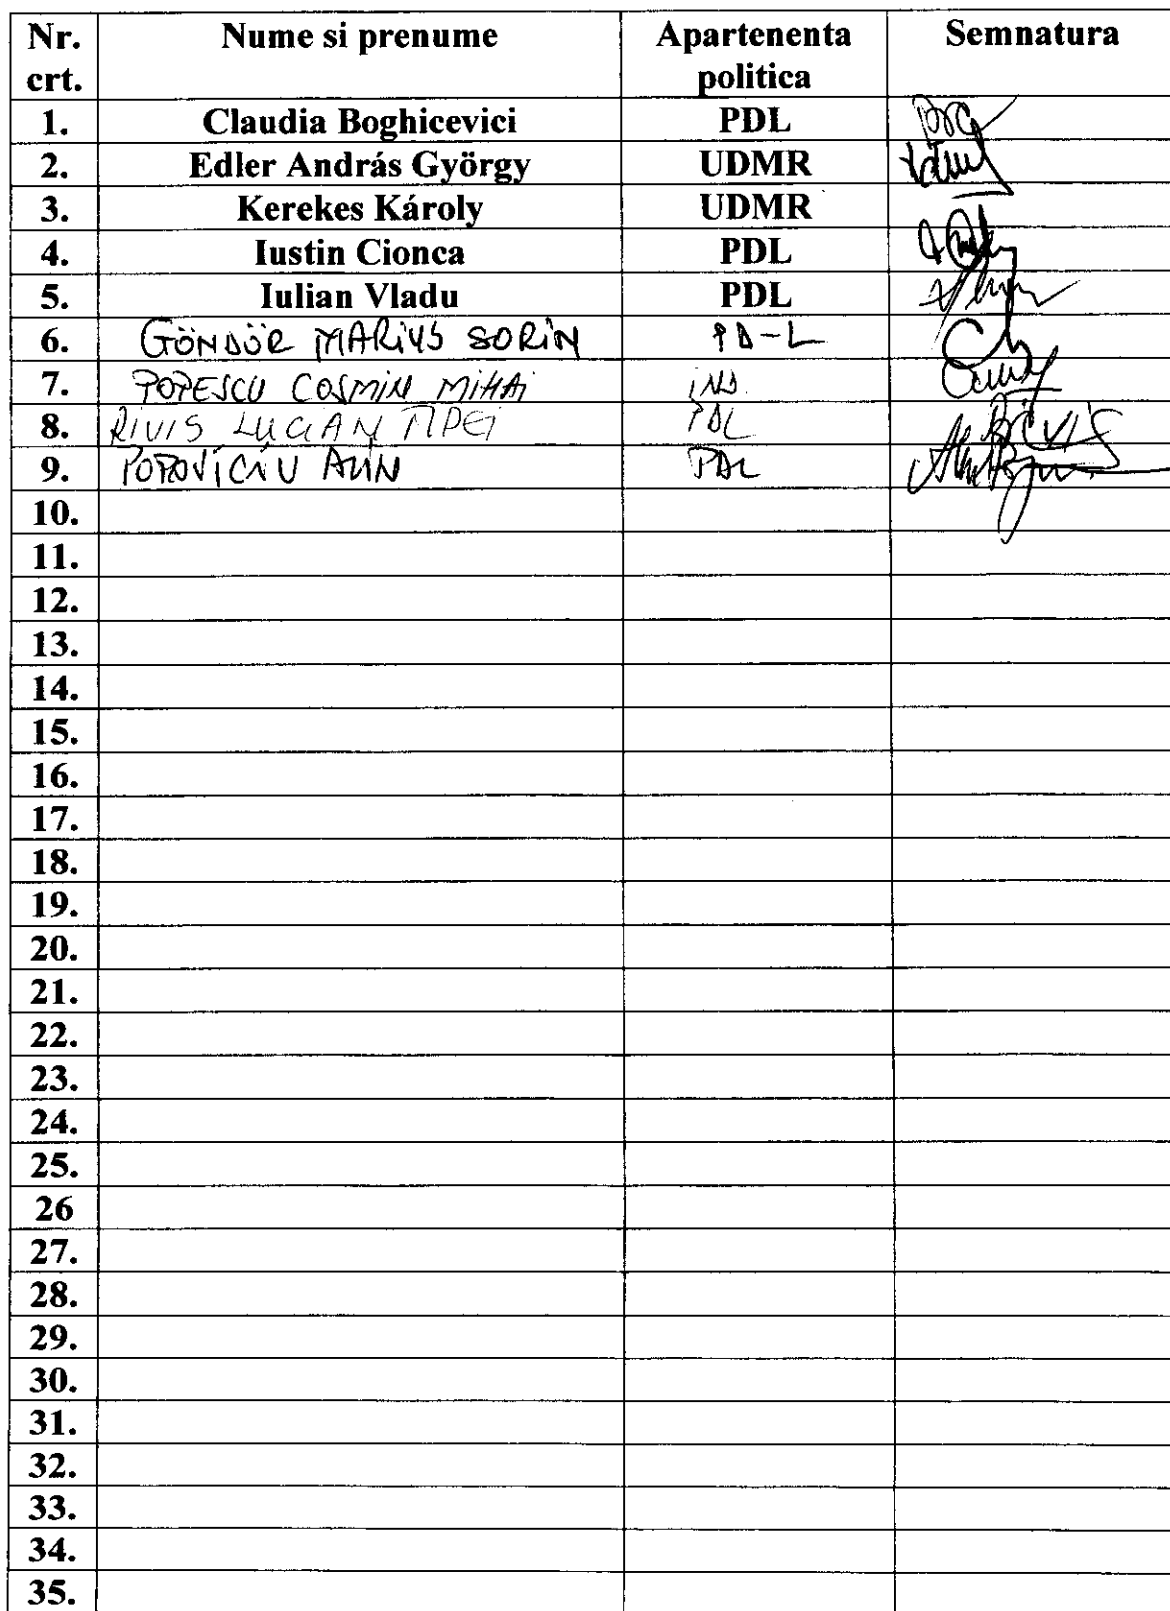 Nr. crt. Nume si prenume Apartenenta politica Semnatura
1. Claudia Boghicevici PDL
2. Edler András György UDMR
3. Kerekes Károly UDMR
4. Iustin Cionca PDL
5. Iulian Vladu PDL
6. GÖNDÖR MARIUS SORIN PD-L
7. POPESCU COSMIN MIHAI IND.
8. RIVIS LUCIAN TIPEI PDL RIVIS
9. POPOVICIU ALIN PDL
10.
11.
12.
13.
14.
15.
16.
17.
18.
19.
20.
21.
22.
23.
24.
25.
26
27.
28.
29.
30.
31.
32.
33.
34.
35.